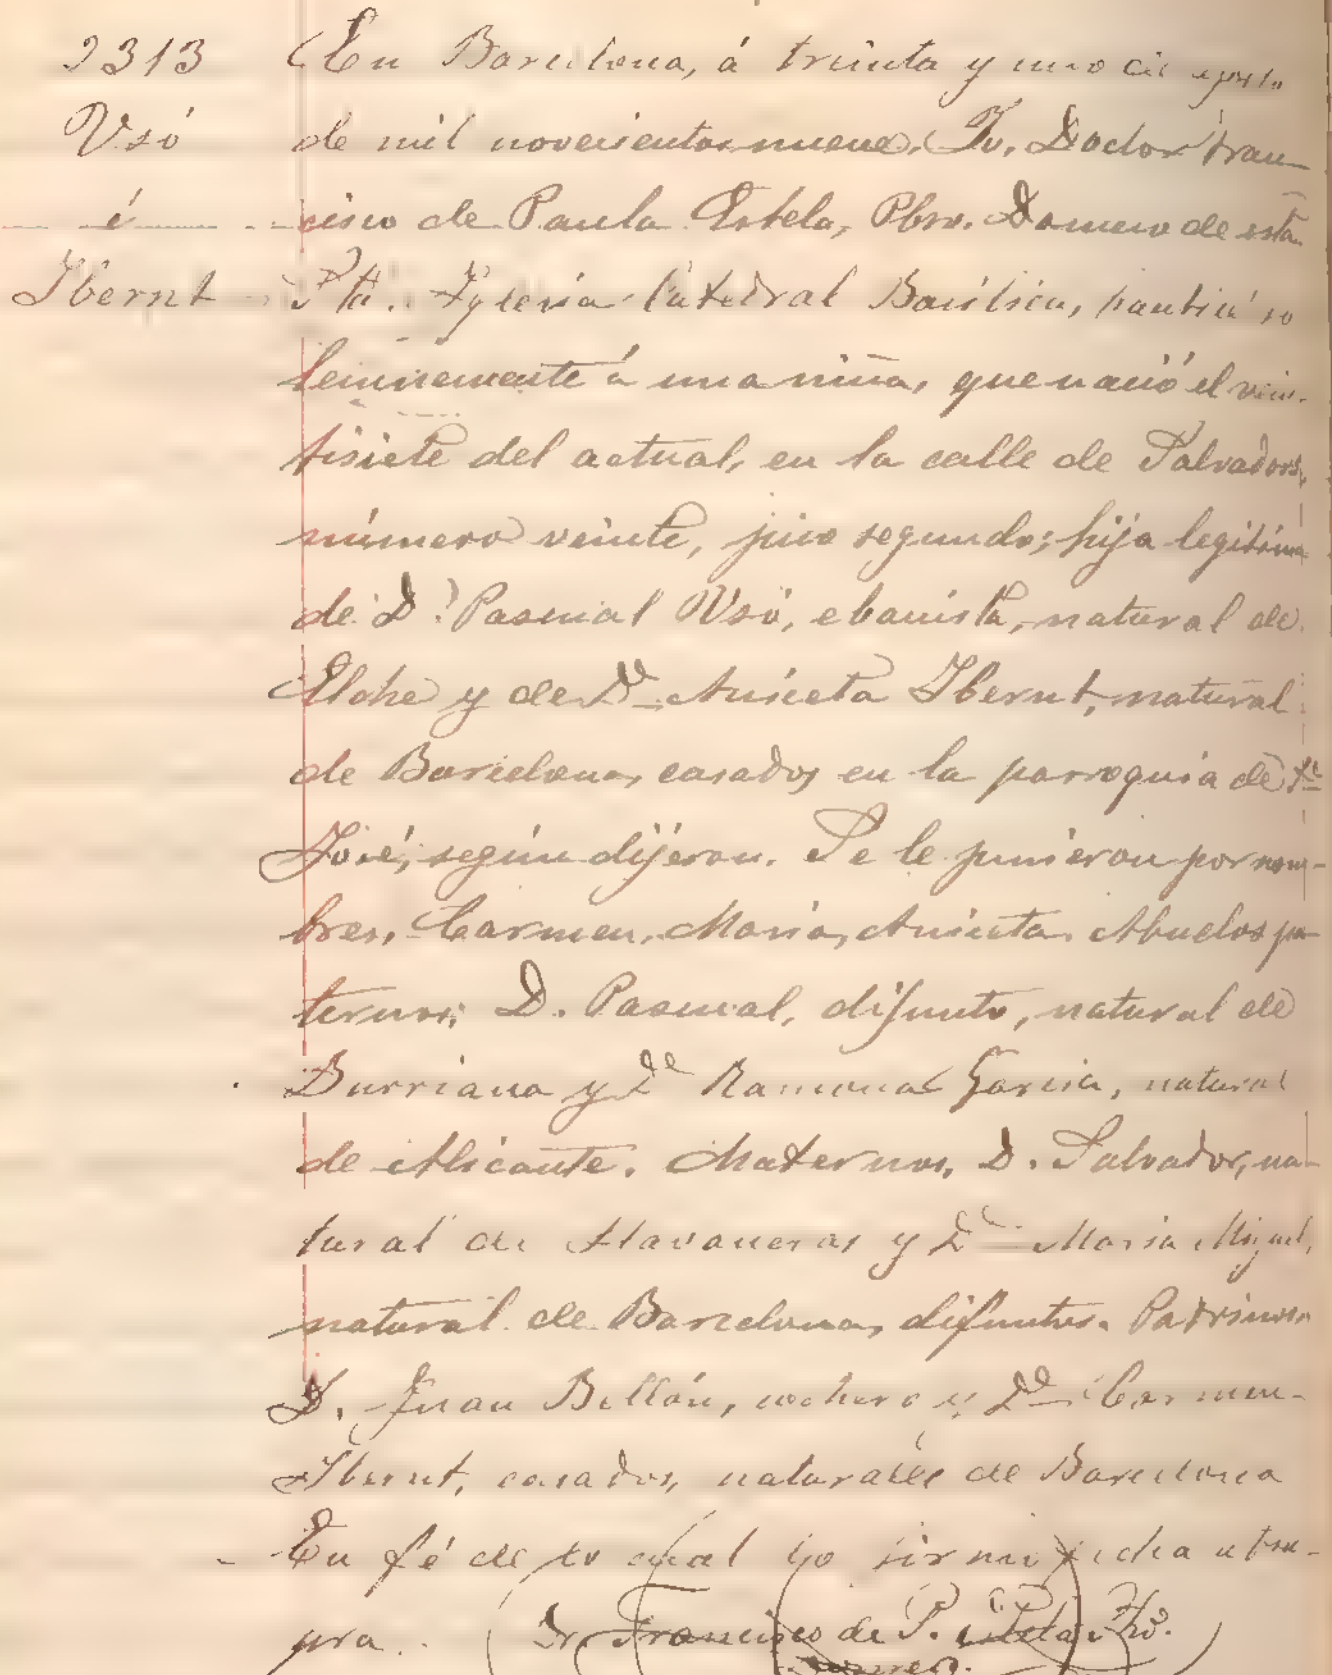 2313 En Barcelona, á treinta y uno de agosto
Usó de mil novecientos nueve, Yo, Doctor Fran-
é cisco de Paula Estela, Pbro. Domero de esta
Ibernt Sta. Iglesia Catedral Basílica, bauticé so
lemnemente á una niña, que nació el vein-
tisiete del actual, en la calle de Salvadors,
número veinte, piso segundo; hija legítima
de D. Pascual Usó, ebanista, natural de
Elche y de Dª Aniceta Ibernt, natural
de Barcelona, casados en la parroquia de Sn
José, según dijéron. Se le pusieron por nom-
bres, Carmen, María, Aniceta. Abuelos pa-
ternos; D. Pascual, difunto, natural de
Burriana y Dª Ramona García, natural
de Alicante. Maternos, D. Salvador, na-
tural de Llavaneras y Dª María Miguel,
natural de Barcelona, difuntos. Padrinos,
D. Juan Bellón, cochero y Dª Carmen
Ibernt, casados, naturales de Barcelona
En fé de lo cual lo firmo fecha utsu-
pra. Dr. Francisco de P. Estela Pbo.
Domero.